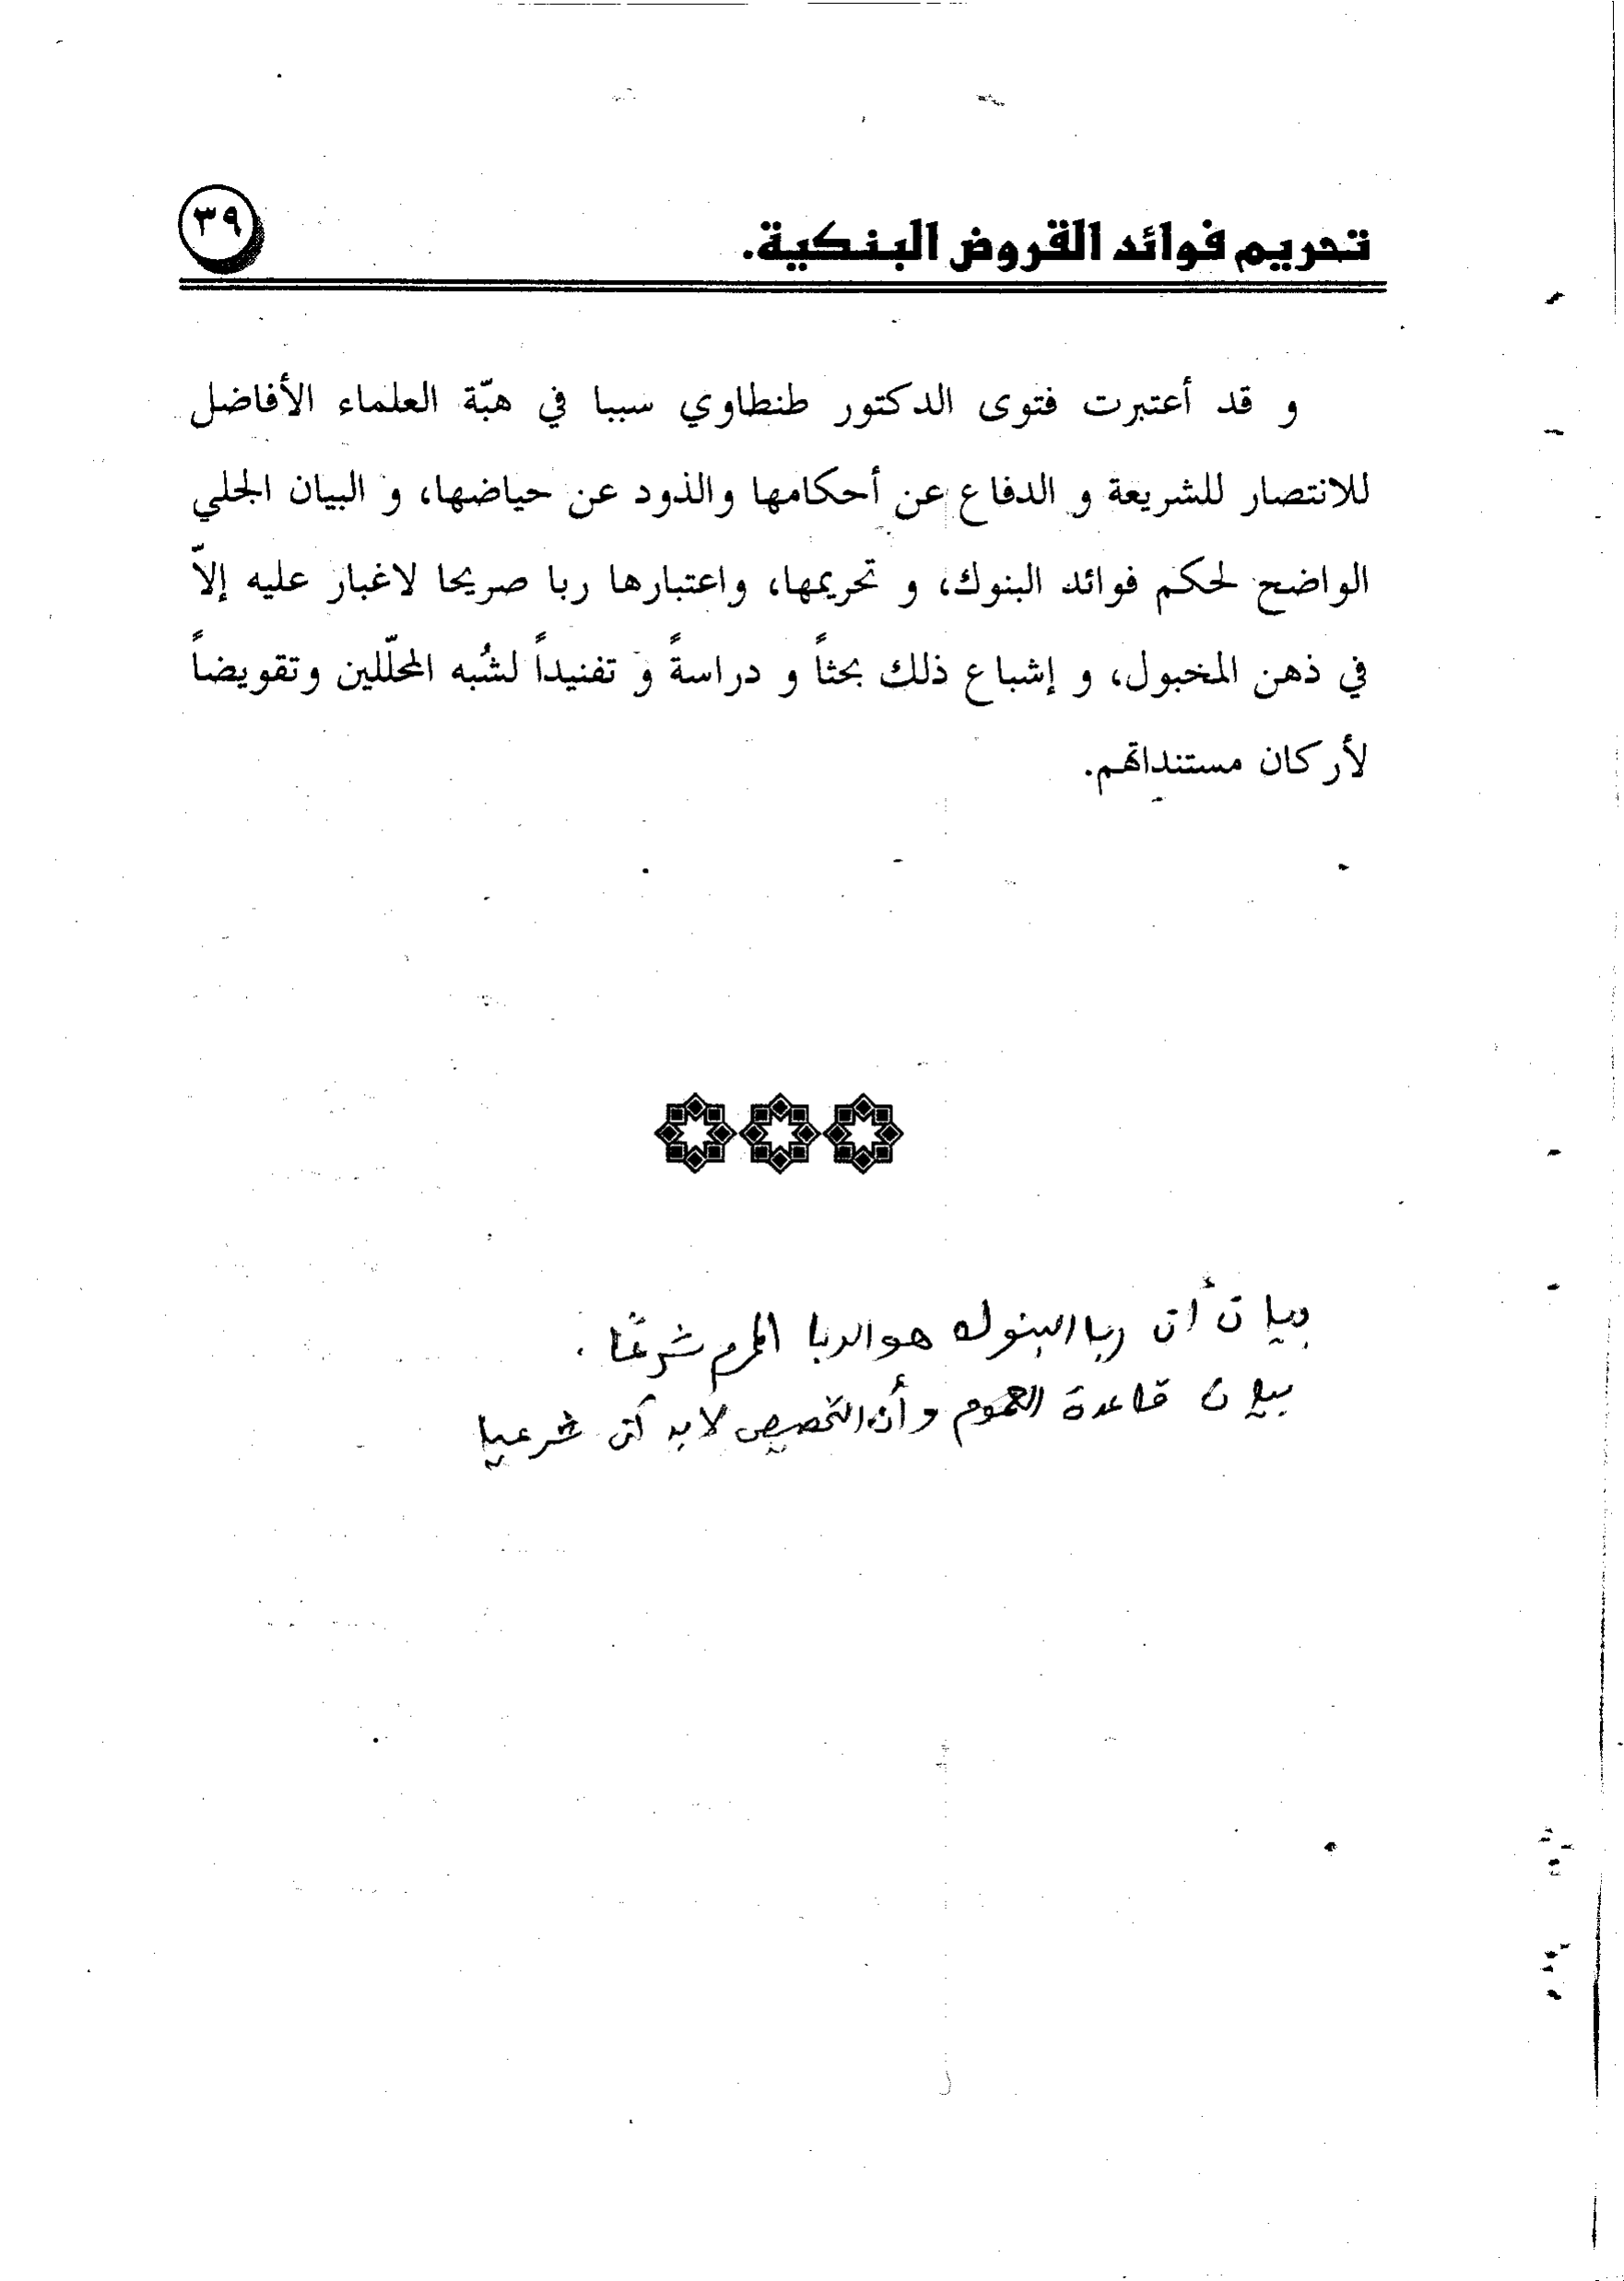 تحريم فوائد القروض البنكية.
٣٩
و قد أعتبرت فتوى الدكتور طنطاوي سببا في هبّة العلماء الأفاضل
للانتصار للشريعة و الدفاع عن أحكامها والذود عن حياضها، و البيان الجلي
الواضح لحكم فوائد البنوك، و تحريمها، واعتبارها ربا صريحا لاغبار عليه إلاّ
في ذهن المخبول، و إشباع ذلك بحثاً و دراسةً و تفنيداً لشُبه المحلّلين وتقويضاً
لأركان مستنداتهم.
بيان أن ربا البنوك هو الربا المحرم شرعًا.
بيان قاعدة العموم وأن التخصيص لابد شرعيا